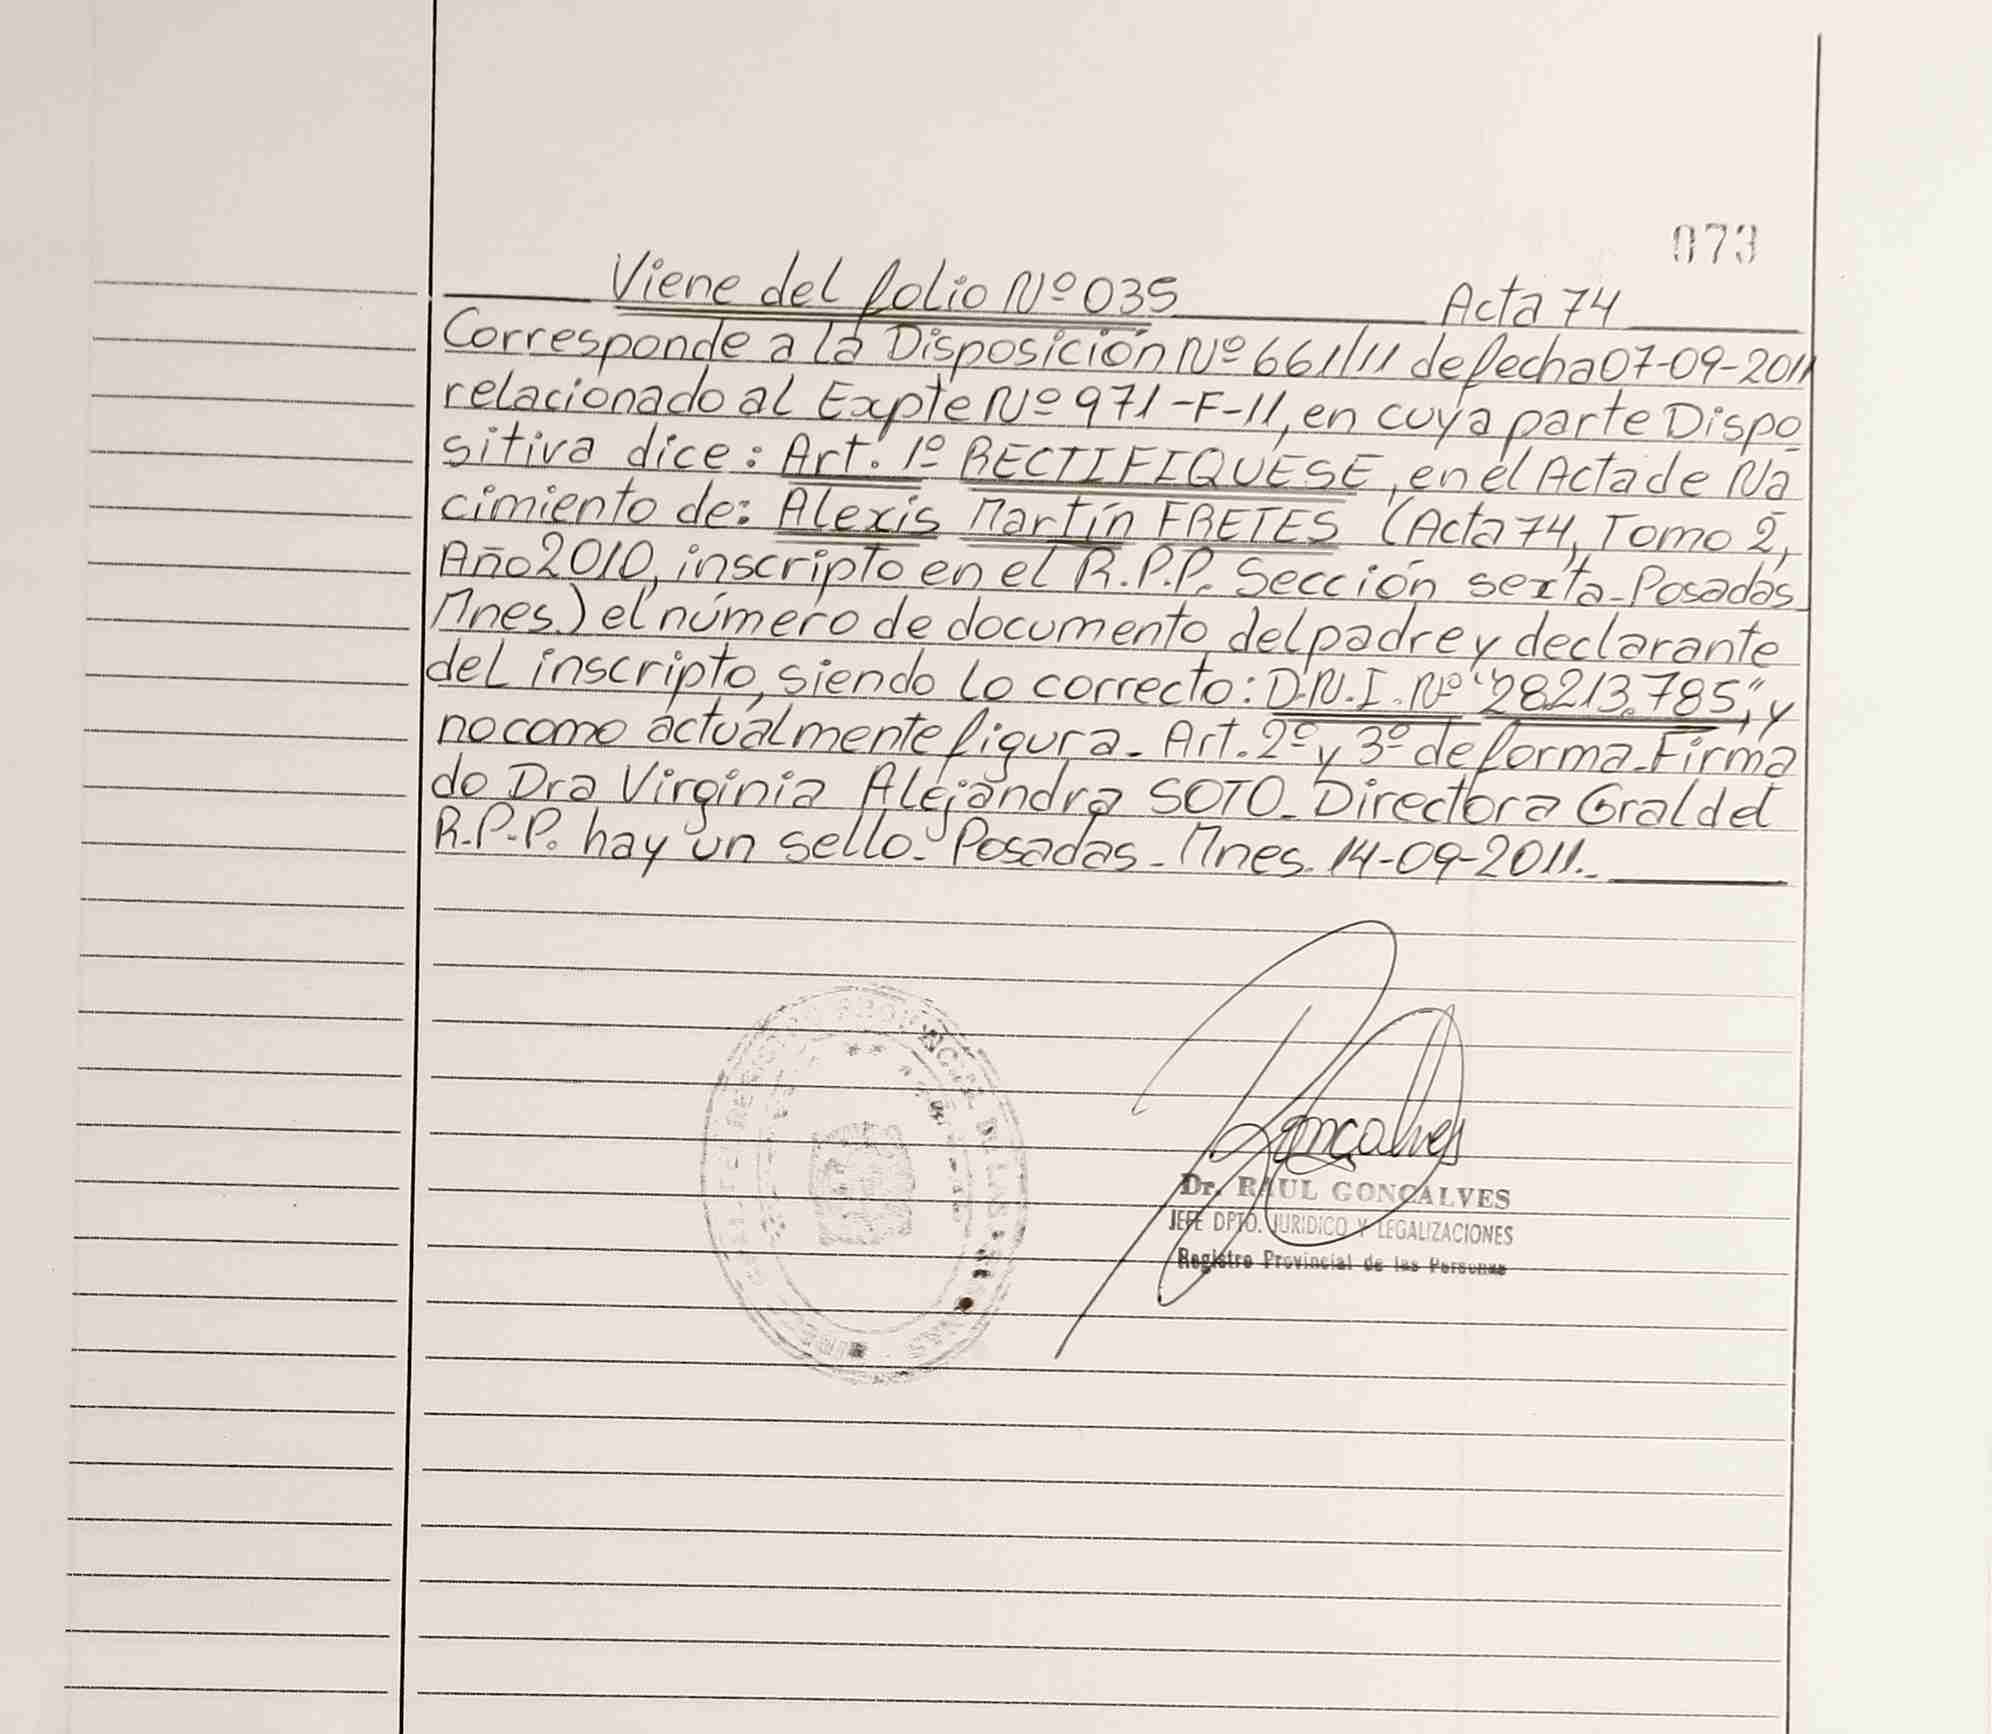 073
Viene del folio Nº 035 Acta 74
Corresponde a la Disposición Nº 661/11 de fecha 07-09-2011
relacionado al Expte Nº 971-F-11, en cuya parte Dispo
sitiva dice: Art. 1º RECTIFIQUESE, en el Acta de Na
cimiento de: Alexis Martín FRETES (Acta 74, Tomo 2,
Año 2010, inscripto en el R.P.P. Sección sexta-Posadas
Mnes.) el número de documento del padre y declarante
del inscripto, siendo lo correcto: D.N.I. Nº "28.213.785", y
no como actualmente figura. Art. 2º y 3º de forma. Firma
do Dra Virginia Alejandra SOTO. Directora Gral del
R.P.P. hay un sello. Posadas. Mnes. 14-09-2011.
Goncalves
Dr. RAUL GONCALVES
JEFE DPTO. JURIDICO Y LEGALIZACIONES
Registro Provincial de las Personas